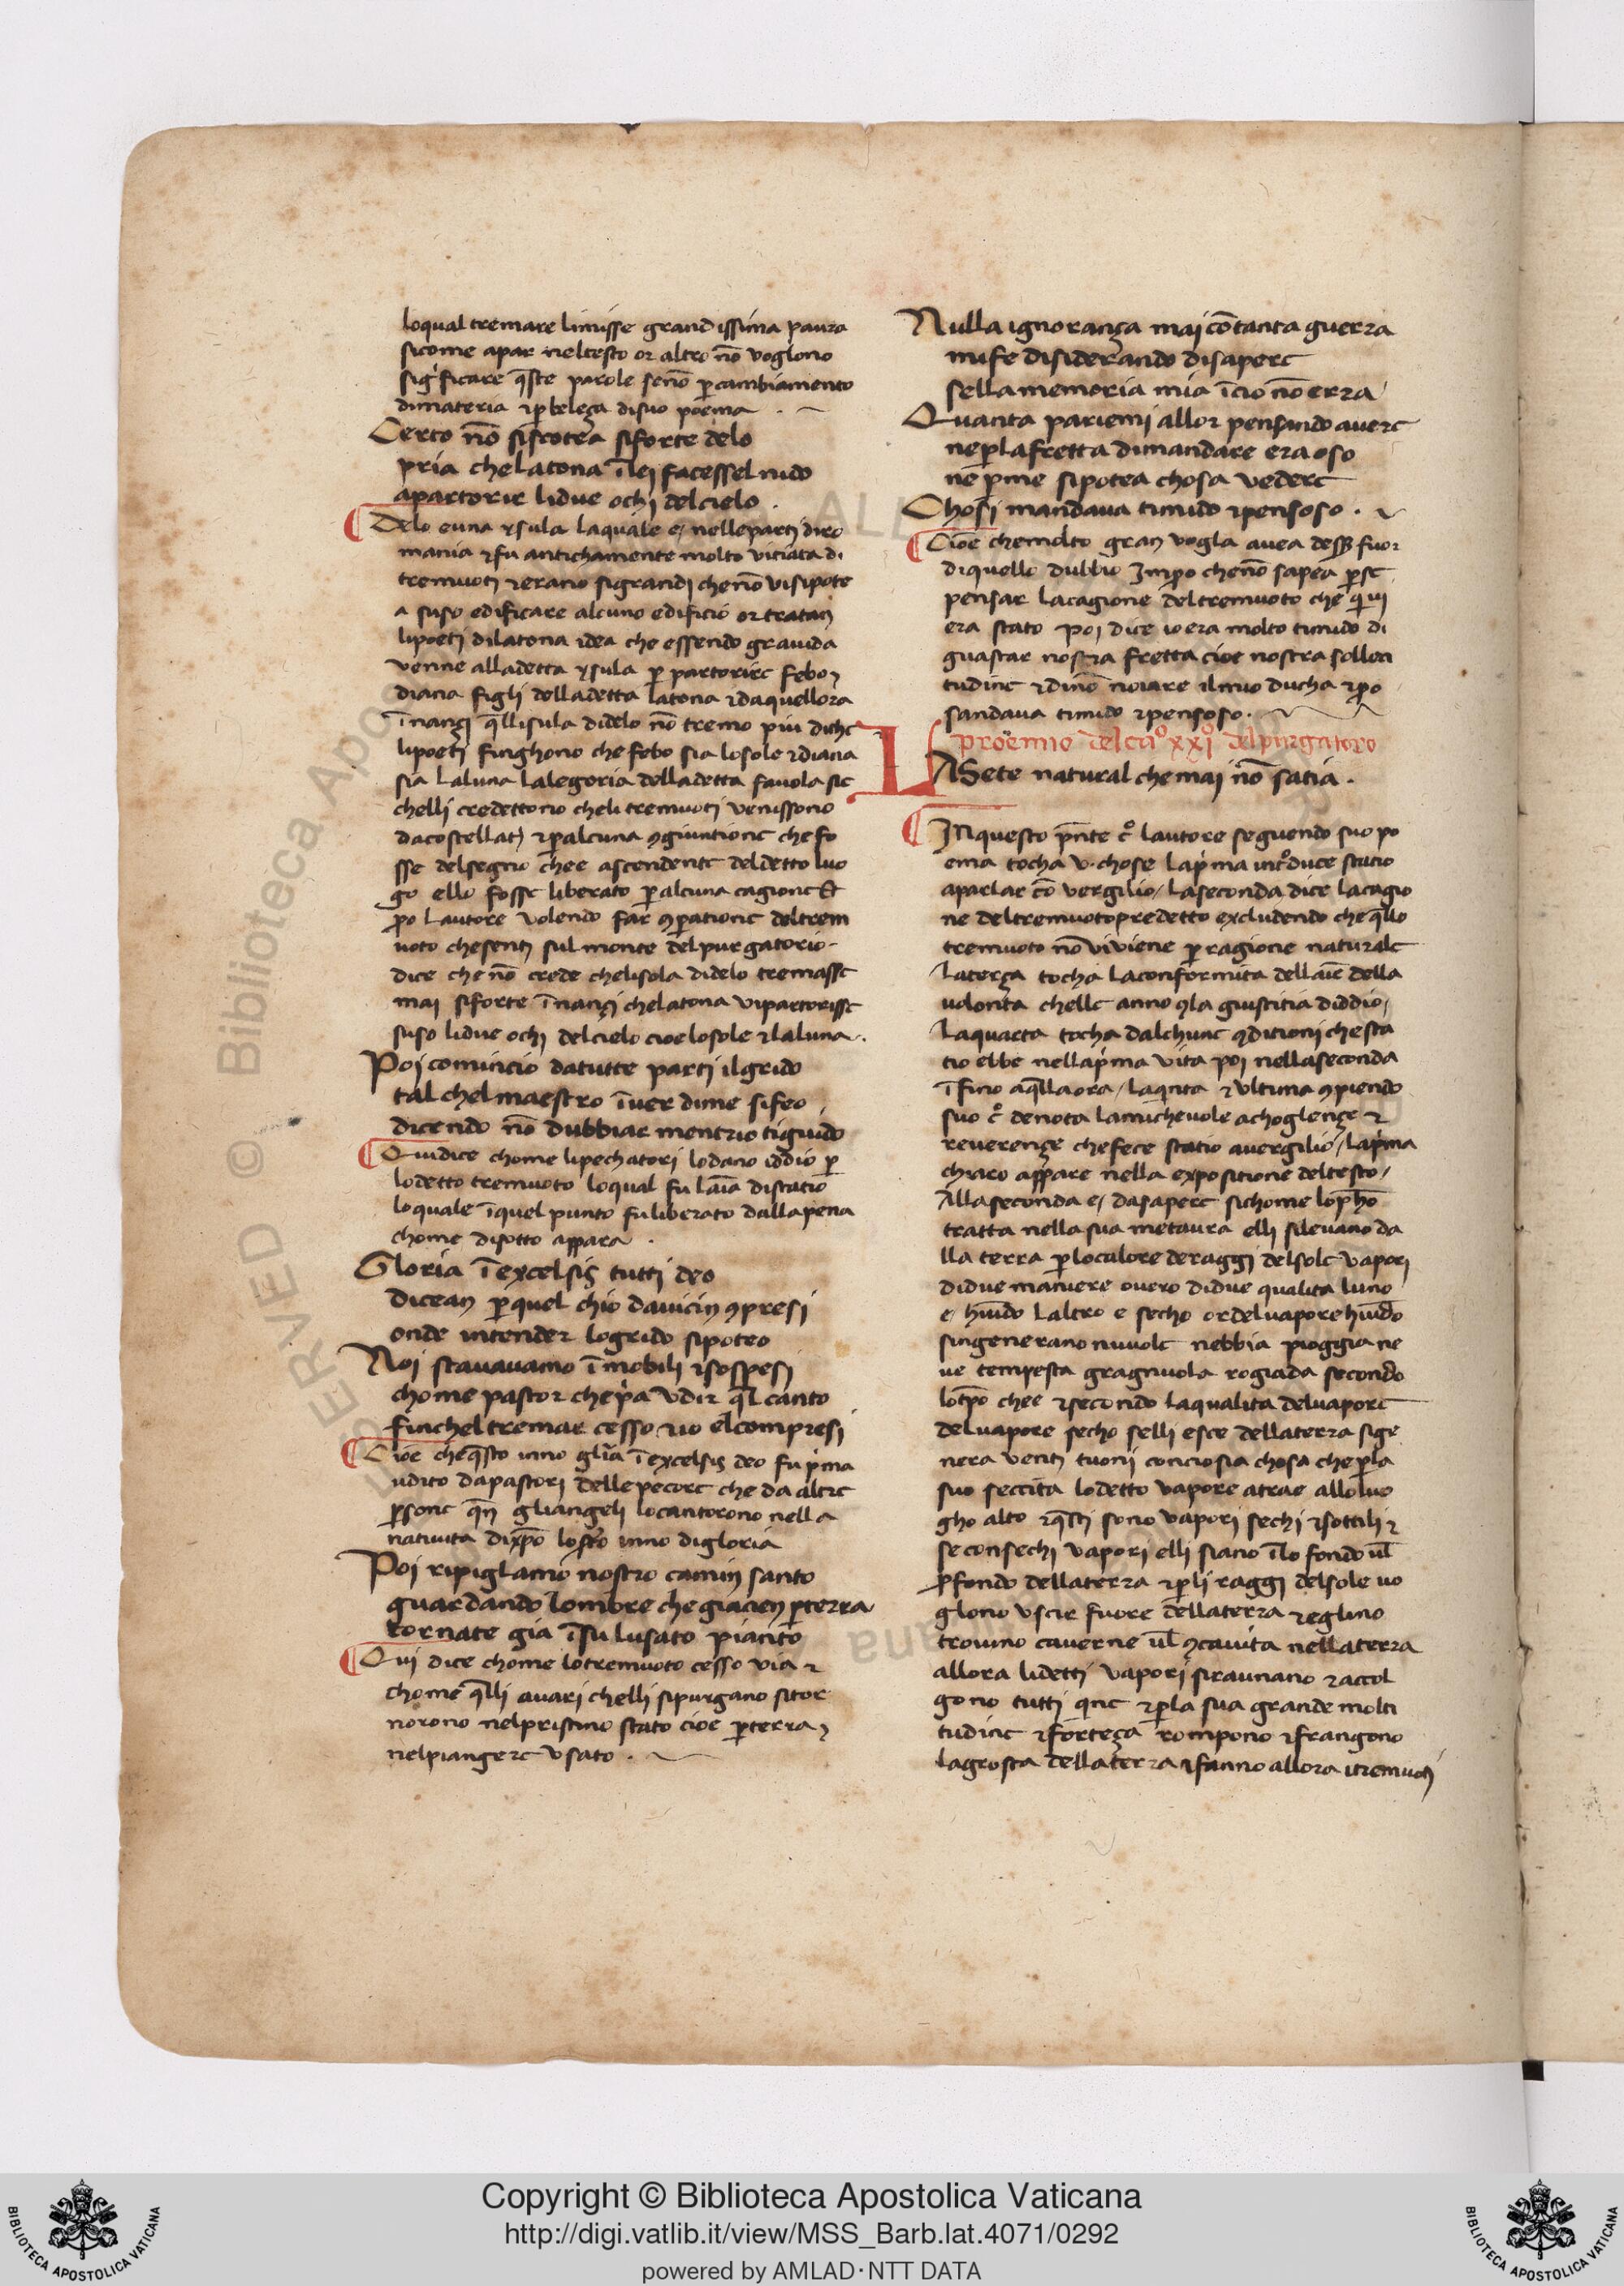 loqual tremare limisse grandissima paura
sicome apar neltesto or altro nō voglono
significare q̄ste parole senō ꝑcambiamento
dimateria ⁊ꝑbeleça disuo poema
Certo nō siscotea siforte delo
pria chelatona ī lei facessel nido
apartorir lidue ochi delcielo .
Delo euna ysula laquale e nelleparti diro
mania ⁊fu antichamente molto viciata di
tremuoti ⁊erano sigrandi chenō visipote
a suso edificare alcuno edificio or tratan
lipoeti dilatona idea che essendo grauida
venne alladetta ysula ꝑ partorire febo ⁊
diana figli delladetta latona ⁊daquellora
īnançi q̄llisula didelo nō tremo piu diche
lipoeti finghono che febo sia losole ⁊diana
sia laluna lalegoria delladetta fauola sie
chelli credettono cheli tremuoti venissono
dacostellati ⁊ꝑalcuna ꝯgiuntione che fo
sse delsegno chee ascendente deldetto luo
go ello fosse liberato ꝑalcuna cagione Et
ꝑo lautore volendo far ꝯꝑatione deltrem
uoto chesenti sulmonte delpurgatorio
dice chenō crede chelisola didelo tremasse
mai siforte īnançi chelatona vipartorisse
suso lidue ochi delcielo cioe losole ⁊laluna .
Poi comincio datutte parti ilgrido
tal chelmaestro īuer dime sifeo
dicendo nō dubbiar mentrio tiguido
Quidice chome lipechatori lodano iddio ꝑ
lodetto tremuoto loqual fu laīa distatio
loquale īquel punto fuliberato dallapena
chome disotto appara .
Gloria ī excelsis tutti deo
dicean ꝑquel chio dauicin ꝯpresi
onde intender logrido sipoteo
Noi stauauamo īmobili ⁊sospesi
chome pastor chepͥa vdir q̄l canto
finchel tremar cesso ⁊io elcompresi
Cioe cheq̄sto inno gl̄ia ī excelsis deo fu pͥma
udito dapastori delle pecore che da altre
ꝑsone qn̄ gliangeli locantorono nella
natiuita dixp̄o inno digloria
Poi ripiglamo nostro camin santo
guardando lombre chegiacien ꝑterra
tornate gia īsu lusato pianto
Qui dice chome lotremuoto cesso via ⁊
chome q̄lli auari chelli sipurgano sitor
norono nelpristino stato cioe ꝑterra ⁊
nelpiangere vsato .
Nulla ignorança mai cōtanta guerra
mife disiderando disapere
sellamemoria mia īcio nōerra
Quanta pariemi allor pensando auere
neꝑlafretta dimandare era oso
ne ꝑme sipotea chosa vedere
Chosi mandaua timido ⁊pensoso .
Cioe chemolto gran vogla auea desser fuor
diquello dubbio Imꝑo chenō sapea ꝑse
pensar lacagione deltremuoto che qͥui
era stato poi dice io era molto timido di
guastar nostra fretta cioe nostra sollici
tudine ⁊dinō noiare ilmio ducha ⁊ꝑo
sandaua timido ⁊pensoso .
proemio delcaº xxiº delpurgatoro
LA Sete natural chemai nō satia .
In questo pn̄te cº lautore seguendo suo po
ema tocha v. chose lapͥma introduce statio
aparlar cō vergilio / laseconda dice lacagio
ne deltremuoto predetto excludendo cheq̄llo
tremuoto nō viviene ꝑ ragione naturale
laterça tocha laconformita dellaīe della
uolonta chelle anno ꝯla giustitia diddio /
laquarta tocha dalchune ꝯditioni chesta
tio ebbe nellapͥma vita poi nellaseconda
īfino aq̄llaora / laqͥnta ⁊vltima ꝯpiendo
suo cº denota lamicheuole achoglençe ⁊
reuerençe chefece statio auergilio / lapͥma
chiaro appare nella expositione deltesto /
Alla seconda e dasapere sichome loph̄o
tratta nella sua metaura elli sileuano da
lla terra ꝑlocalore deraggi delsole vapori
didue maniere ouero didue qualita luno
e humido laltro e secho or deluapore humido
singenerano nuuole nebbia pioggia ne
ue tempesta gragnuola rogiada secondo
lotp̄o chee ⁊secondo laqualita deluapore
deluapore secho selli esce dellaterra sige
nera venti tuoni conciosia chosa cheꝑla
suo seccita lodetto vapore atrae alloluo
gho alto ⁊q̄sti sono vapori sechi ⁊sottili ⁊
seconsechi vapori elli siano īlo fondo ul̄
ꝓfondo dellaterra ⁊ꝑli raggi delsole uo
glono vscir fuore dellaterra ⁊eglino
trouino cauerne ul̄ ꝯcauita nellaterra
allora lidetti vapori siraunano ⁊accol
gono tutti qͥne ⁊ꝑla sua grande molti
tudine ⁊forteça rompono ⁊frangono
lagrosta dellaterra ⁊fanno allora itremuoti
Copyright © Biblioteca Apostolica Vaticana
http://digi.vatlib.it/view/MSS_Barb.lat.4071/0292
powered by AMLAD·NTT DATA
BIBLIOTECA APOSTOLICA VATICANA
BIBLIOTECA APOSTOLICA VATICANA